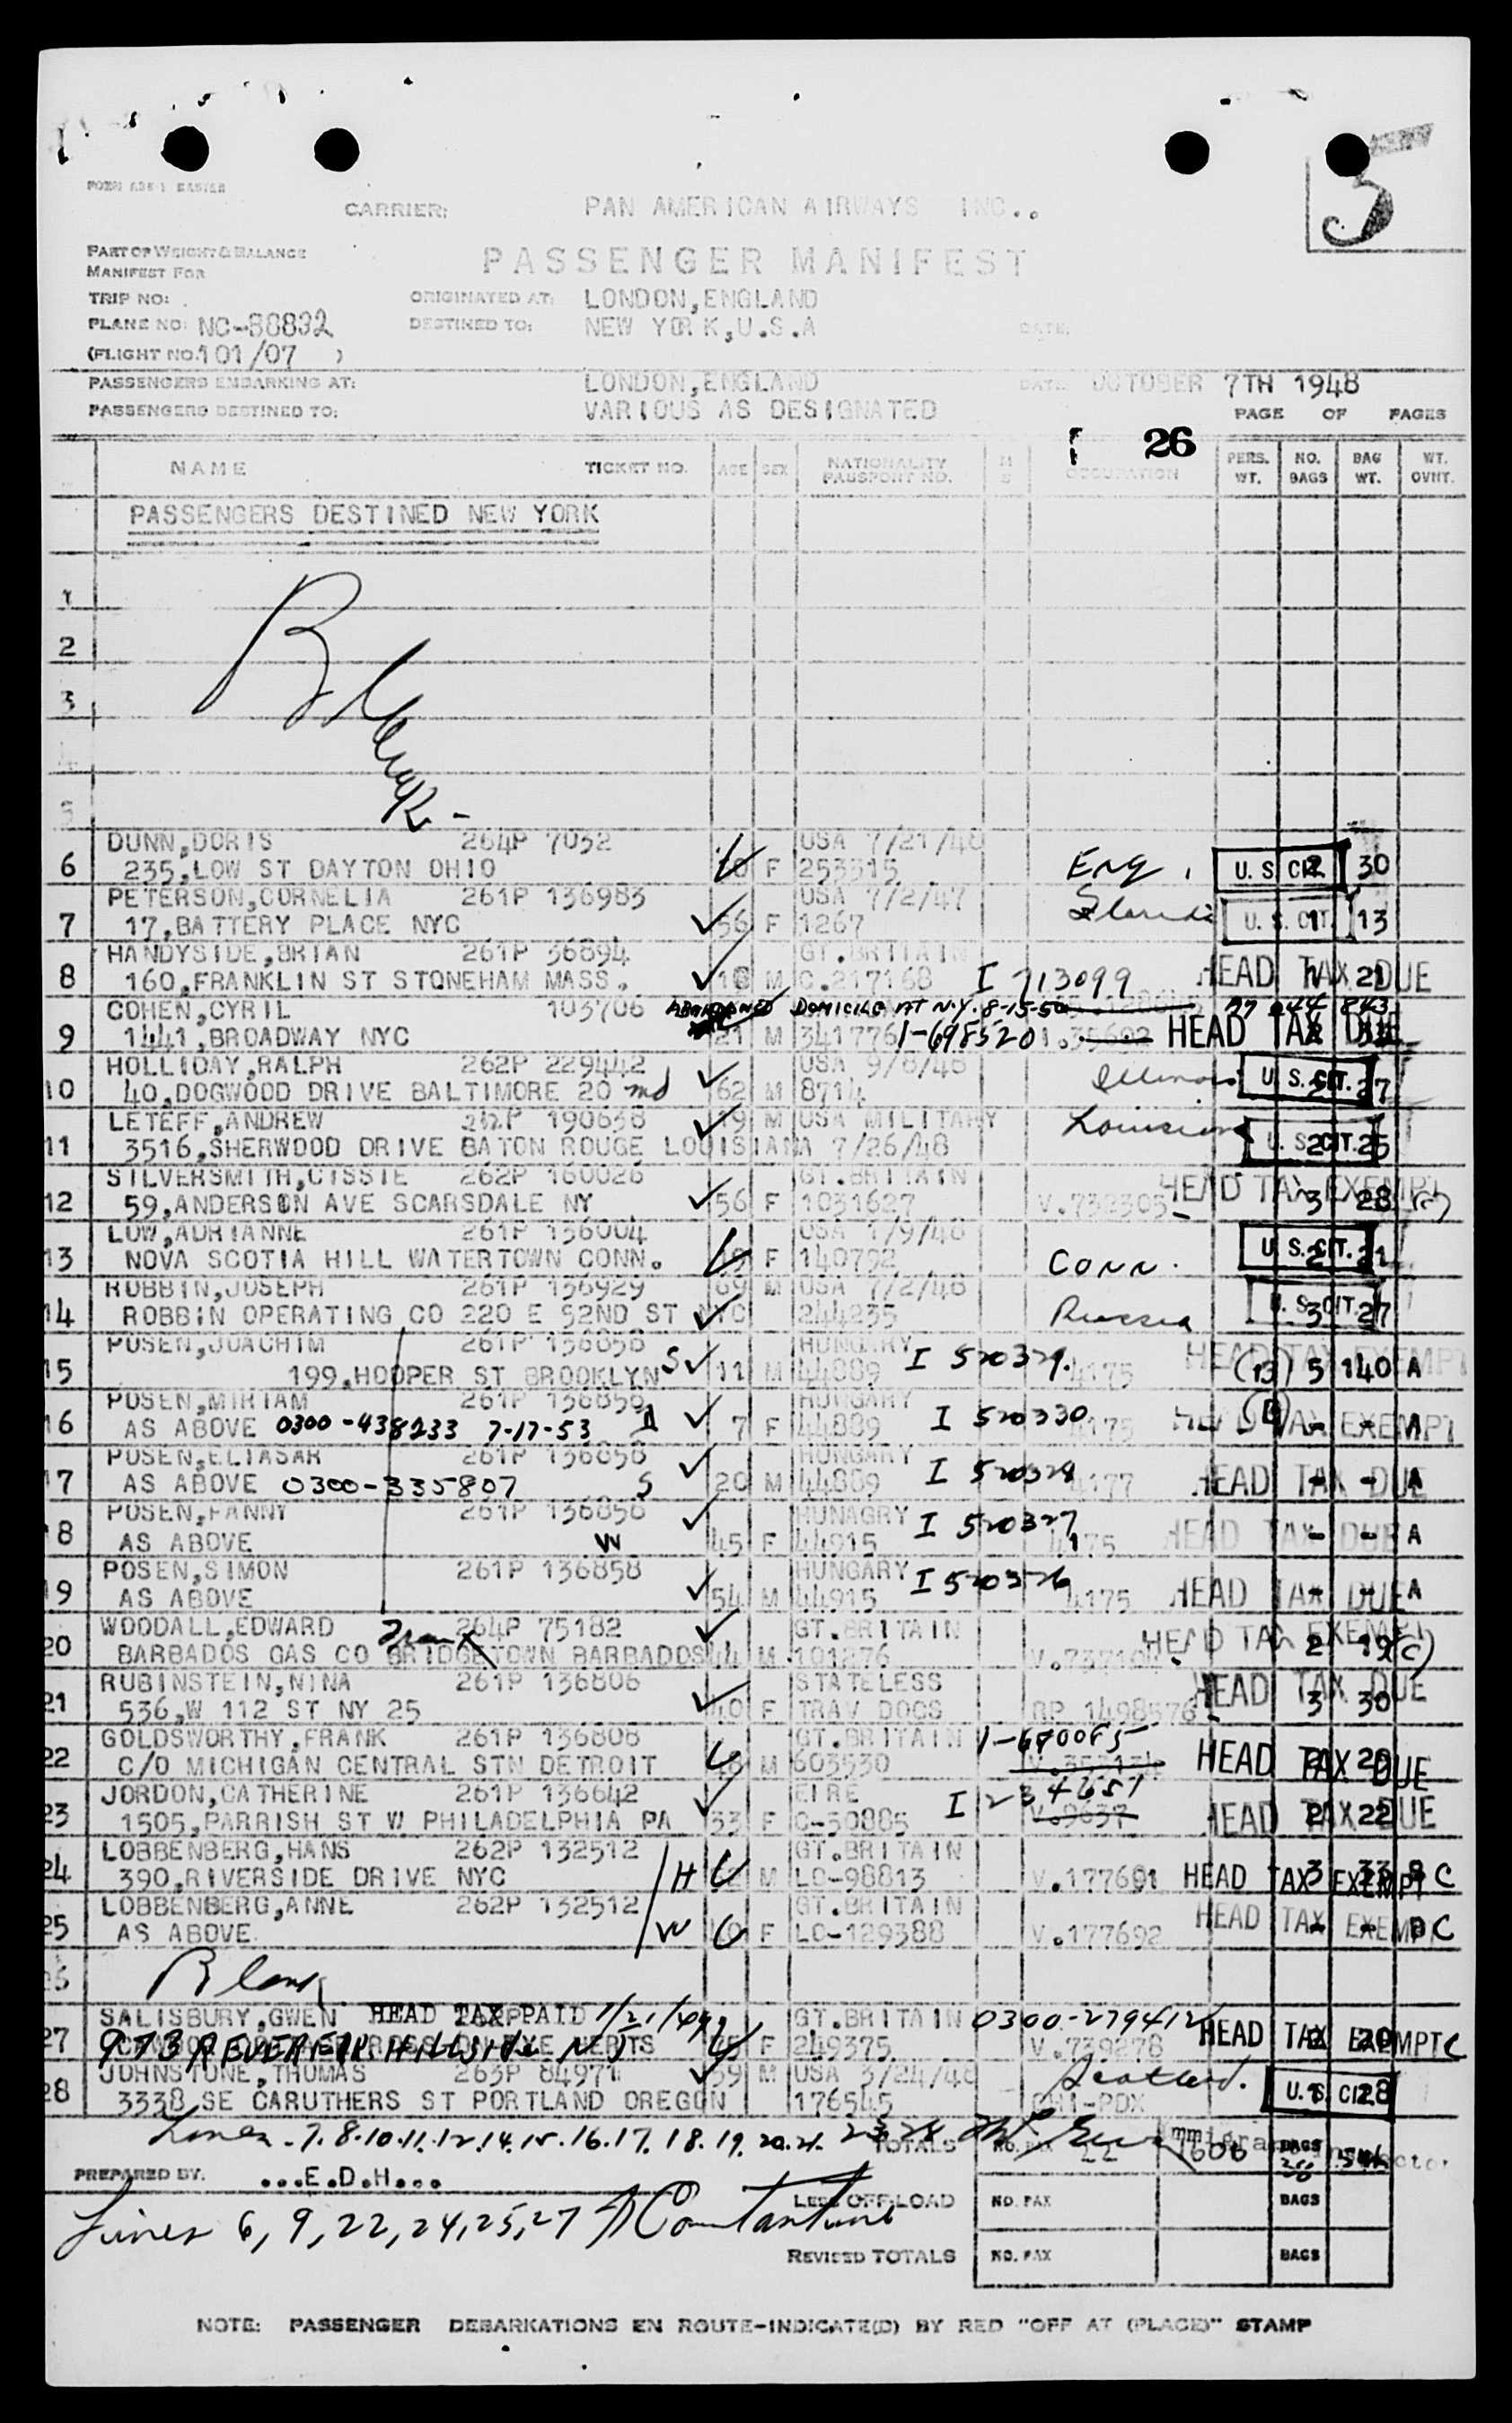 CARRIER: PAN AMERICAN AIRWAYS INC..
PASSENGER MANIFEST
PART OF WEIGHT & BALANCE
MANIFEST FOR
TRIP NO: ORIGINATED AT: LONDON,ENGLAND
PLANE NO: DESTINED TO: NEW YORK,U.S.A DATE:
(FLIGHT NO. 101/07 )
PASSENGERS EMBARKING AT: LONDON,ENGLAND DATE: OCTOBER 7TH 1948
PASSENGERS DESTINED TO: VARIOUS AS DESIGNATED PAGE OF PAGES
26
NAME TICKET NO. AGE SEX NATIONALITY PASSPORT NO. OCCUPATION PERS. WT. NO. BAGS BAG WT. WT. OVHT.
PASSENGERS DESTINED NEW YORK
1
2
3
4
5
Blank -
DUNN,DORIS 264P 7032 USA 7/21/48
6 235,LOW ST DAYTON OHIO F 253515 Eng. U. S. CIT. 2 30
PETERSON,CORNELIA 261P 136983 USA 7/2/47
7 17,BATTERY PLACE NYC 56 F 1267 U. S. CIT. 1 13
HANDYSIDE,BRIAN 261P 36894 GT.BRITAIN
8 160,FRANKLIN ST STONEHAM MASS. M C.217168 I 713099 HEAD TAX DUE 21
COHEN,CYRIL 103706 ABANDONED DOMICILE AT N.Y. 8-15-50
9 1441,BROADWAY NYC 21 M 341776 1-698520 HEAD TAX DUE
HOLLIDAY,RALPH 262P 229442 USA 9/6/46
10 40,DOGWOOD DRIVE BALTIMORE 20 md 62 M 8714 Illinois U. S. CIT. 27
LETEFF,ANDREW 262P 190636 M USA MILITARY
11 3516,SHERWOOD DRIVE BATON ROUGE LOUISIANA 7/26/48 Louisiana U. S. CIT. 2 25
SILVERSMITH,CISSIE 262P 160026 GT.BRITAIN
12 59,ANDERSON AVE SCARSDALE NY 56 F 1031627 V.732305 HEAD TAX EXEMPT 3 28 (c)
LOW,ADRIANNE 261P 136004 USA 1/9/48
13 NOVA SCOTIA HILL WATERTOWN CONN. F 140792 CONN. U. S. CIT. 21
ROBBIN,JOSEPH 261P 136929 69 M USA 7/2/48
14 ROBBIN OPERATING CO 220 E 52ND ST NYC 244235 Russia U. S. CIT. 3 27
POSEN,JOACHIM 261P 136858 HUNGARY
15 199,HOOPER ST BROOKLYN S 11 M 44889 I 520329 4175 HEAD TAX EXEMPT (13) 5 140 A
POSEN,MIRIAM 261P 136859 HUNGARY
16 AS ABOVE 0300-438233 7-17-53 7 F 44889 I 520330 4175 HEAD TAX EXEMPT - - A
POSEN,ELIASAR 261P 136858 HUNGARY
17 AS ABOVE 0300-335807 S 20 M 44889 I 520328 4177 HEAD TAX DUE - - A
POSEN,FANNY 261P 136858 HUNAGRY
18 AS ABOVE W 45 F 44915 I 520327 4175 HEAD TAX DUE - - A
POSEN,SIMON 261P 136858 HUNGARY
19 AS ABOVE 54 M 44915 I 520326 4175 HEAD TAX DUE - - A
WOODALL,EDWARD 264P 75182 GT.BRITAIN
20 BARBADOS GAS CO BRIDGETOWN BARBADOS 44 M 101276 HEAD TAX EXEMPT 2 19 (c)
RUBINSTEIN,NINA 261P 136806 STATELESS
21 536,W 112 ST NY 25 40 F TRAV DOCS RP 1498576 HEAD TAX DUE 3 30
GOLDSWORTHY,FRANK 261P 136808 GT.BRITAIN
22 C/O MICHIGAN CENTRAL STN DETROIT M 603530 HEAD TAX DUE
JORDON,CATHERINE 261P 136642 EIRE
23 1505,PARRISH ST W PHILADELPHIA PA 33 F C-30885 V.9637 HEAD TAX DUE 2 22
LOBBENBERG,HANS 262P 132512 GT.BRITAIN
24 390,RIVERSIDE DRIVE NYC H M LO-98813 V.177691 HEAD TAX EXEMPT 3 33 C
LOBBENBERG,ANNE 262P 132512 GT.BRITAIN
25 AS ABOVE W F LO-129388 V.177692 HEAD TAX EXEMPT - - C
26 Blank
SALISBURY,GWEN HEAD TAX PAID GT.BRITAIN 0300-279412
27 HILLSIDE N J F 249375 V.739278 HEAD TAX EXEMPT C
JOHNSTONE,THOMAS 263P 84971 59 M USA 3/24/48
28 3338 SE CARUTHERS ST PORTLAND OREGON 176545 Scotland. U. S. CIT. 28
Lines. 7. 8. 10. 11. 12. 14. 15. 16. 17. 18. 19. 20. 21. 23. 28. TOTALS NO. PAX 22 BAGS
PREPARED BY. ...E.D.H...
Lines 6, 9, 22, 24, 25, 27 Constantine
LESS OFF-LOAD NO. PAX BAGS
REVISED TOTALS NO. PAX BAGS
NOTE: PASSENGER DEBARKATIONS EN ROUTE-INDICATE(D) BY RED "OFF AT (PLACE)" STAMP